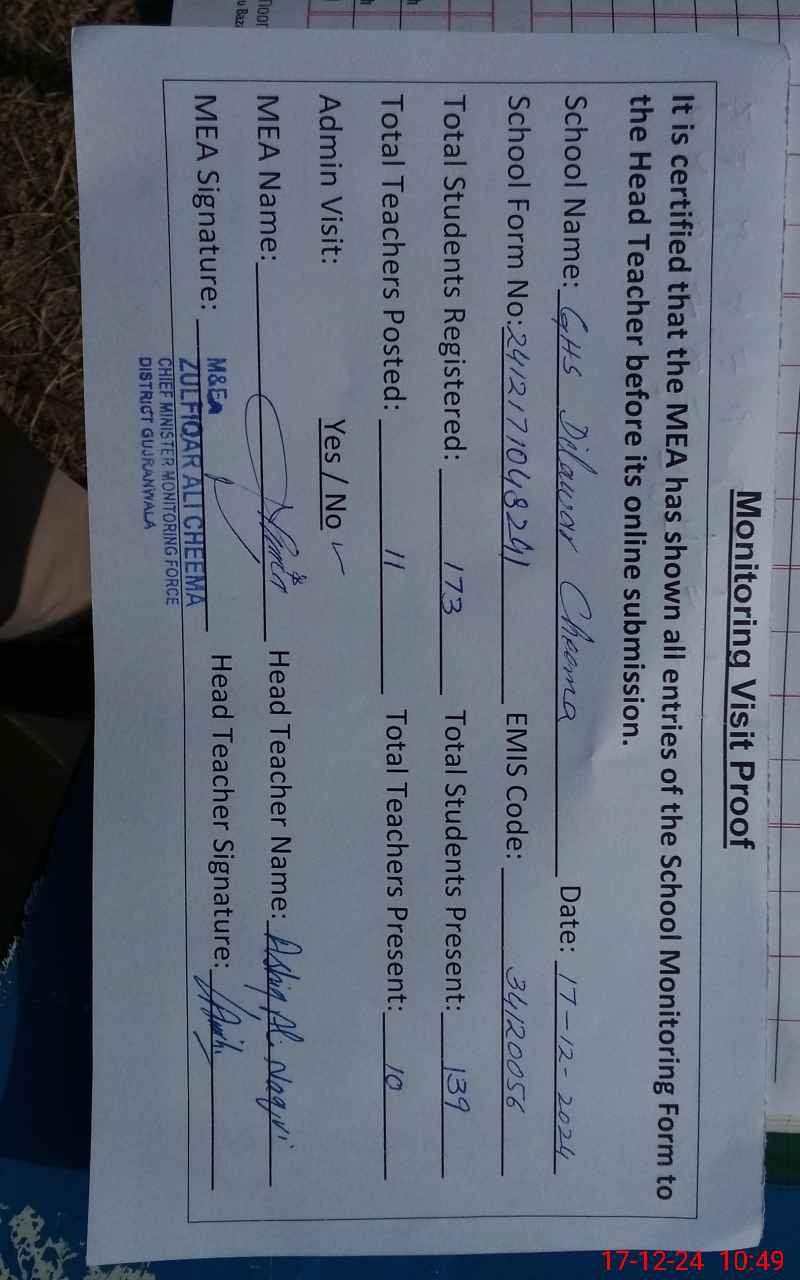 Monitoring Visit Proof
It is certified that the MEA has shown all entries of the School Monitoring Form to
the Head Teacher before its online submission.
School Name: GHS Dilawar Cheema Date: 17-12-2024
School Form No: 2412171048241 EMIS Code: 34120056
Total Students Registered: 173 Total Students Present: 139
Total Teachers Posted: 11 Total Teachers Present: 10
Admin Visit: Yes / No ✓
MEA Name: Head Teacher Name: Ali Naqvi
MEA Signature: Head Teacher Signature:
M&EA
ZULFIQAR ALI CHEEMA
CHIEF MINISTER MONITORING FORCE
DISTRICT GUJRANWALA
17-12-24 10:49